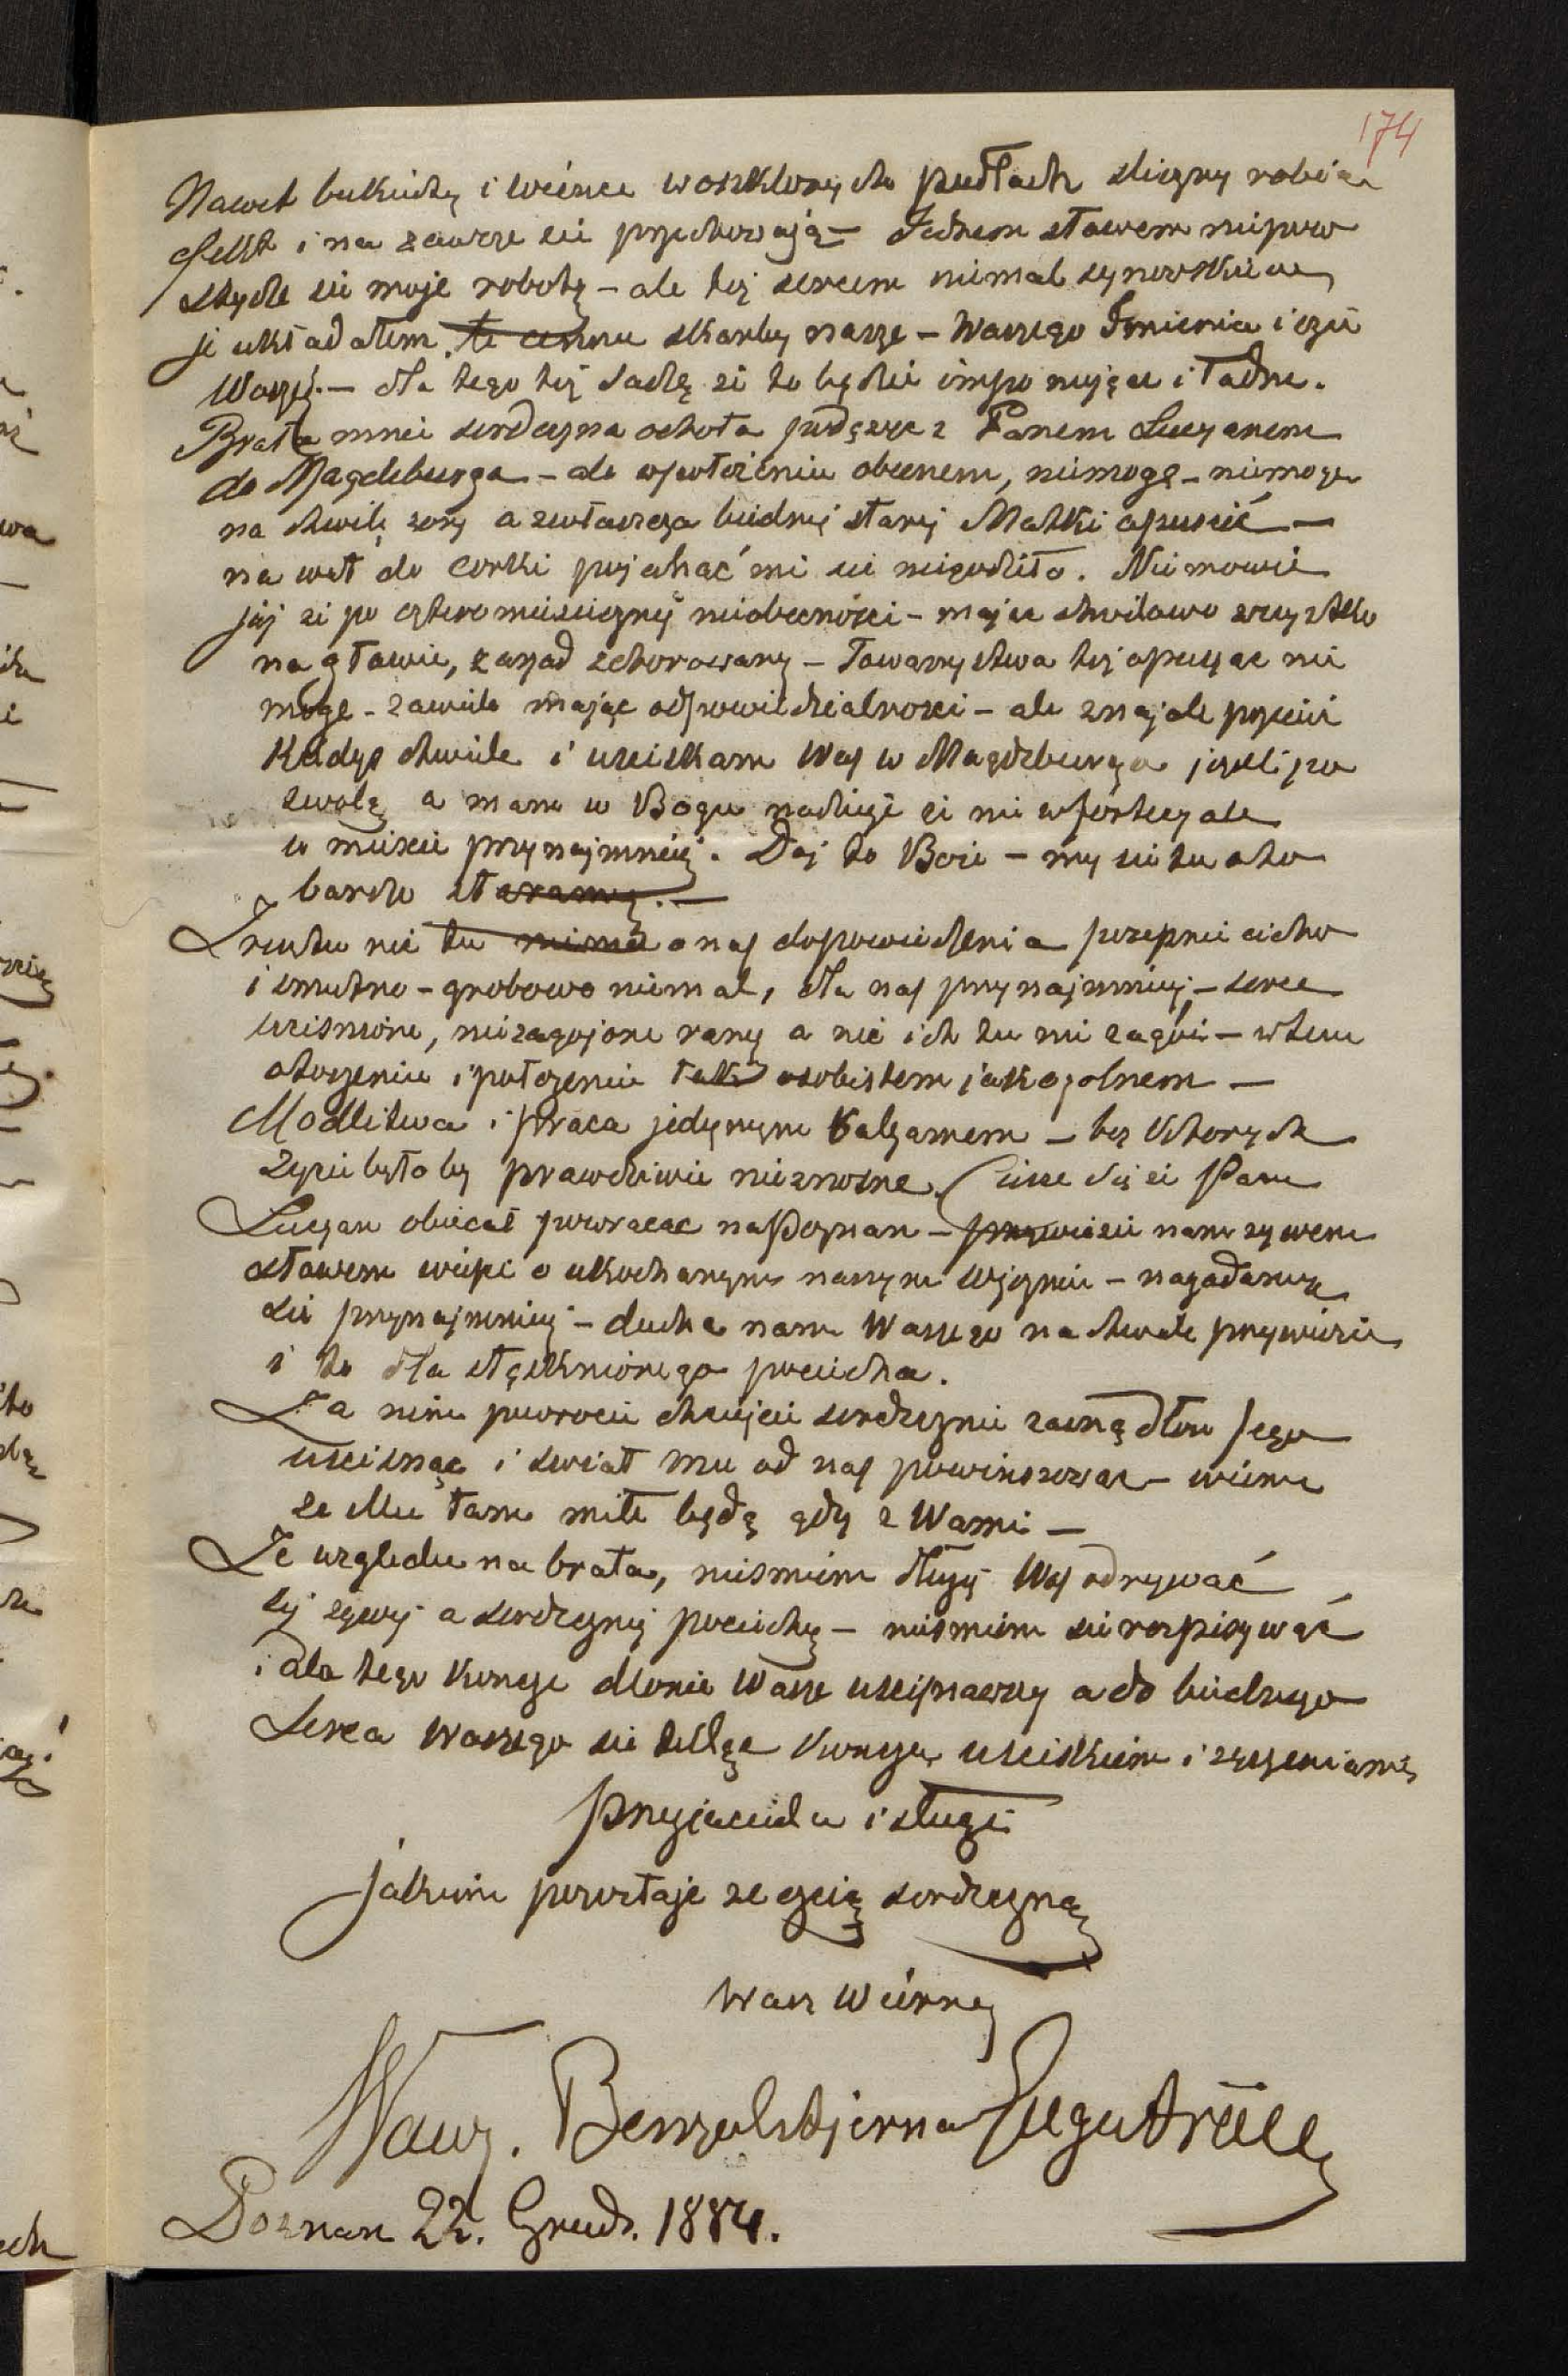 174
Nawet bukiety i wience w oszklonych pudłach sliczny robiąc
efekt i na zawsze sie przechowają — Jednem słowem niepow
stydze sie moje robotę — ale też sercem niemal synowskiem
je układałem, te cenne skarby nasze — Waszego Imienia i czci
Waszéj. — dla tego też sadzę ze to będzie imponujące i ładne.
Brała mnie serdeczna ochota z Panem Lucyanem
do Magdeburga — ale w położeniu obecnem, niemogę — niemogę
na chwilę żony a zwłaszcza biednéj staréj Matki opuścić —
na wet do corki pojechać mi sie niegodziło. Niemowie
już ze po cztero miesiecznéj nieobecności — mając chwilowo wszystko
na głowie, zarząd schorowany — Towarzystwa też opuszac nie
mogę — zawiele mając odpowiedzialnosci — ale znajdę przecie
kiedys chwile i usciskam Was w Magdeburgu jezeli po
zwolą a mam w Bogu nadzieje ze nie w fortecy ale
w miescie przynajmniéj. Daj to Boże — my sie tu o to
bardzo staramy. —
Zresztu nic tu niema o nas dopowiedzenia pozepnie cicho
i smutno — grobowo niemal, dla nas przynajmniéj — serce
uciśnione, niezagojone rany a nic ich tu nie zagói — w tem
otoczeniu i położeniu tak osobistem jak ogolnem —
Modlitwa i praca jedynym balzamem — bez ktorych
zycie byłoby prawdziwie nieznosne. Ciesze się ze Pan
Lucyan obiecał powracac na Poznan — przywiezie nam zywem
słowem wiesc o ukochanym naszym Więzniu — nagadamy
sie przynajmniéj — ducha nam Waszego na chwile przywiezie
i to dla stęsknionego pociecha.
Za nim powroci chciejcie serdecznie zacną dłon Jego
uscisnąc i swiat mu od nas powinszowac — wiemy
ze Mu tam miłe będą gdy z Wami —
Ze względu na brata, niesmiem dłużéj Was odrywać
téj zywéj a serdecznéj pociechy — niesmiem sie rozpisywać
i dla tego koncze dłonie Wasze uscisnawszy a do biednego
Serca Waszego sie tuląc koncze, usciskiem i zyczeniami
przyjaciela i sługi
jakiem pozostaje ze czcią serdeczną
Wasz Wierny
Wawrz. Benzelstjerna Engeström
Poznan 22. Grud. 1884.